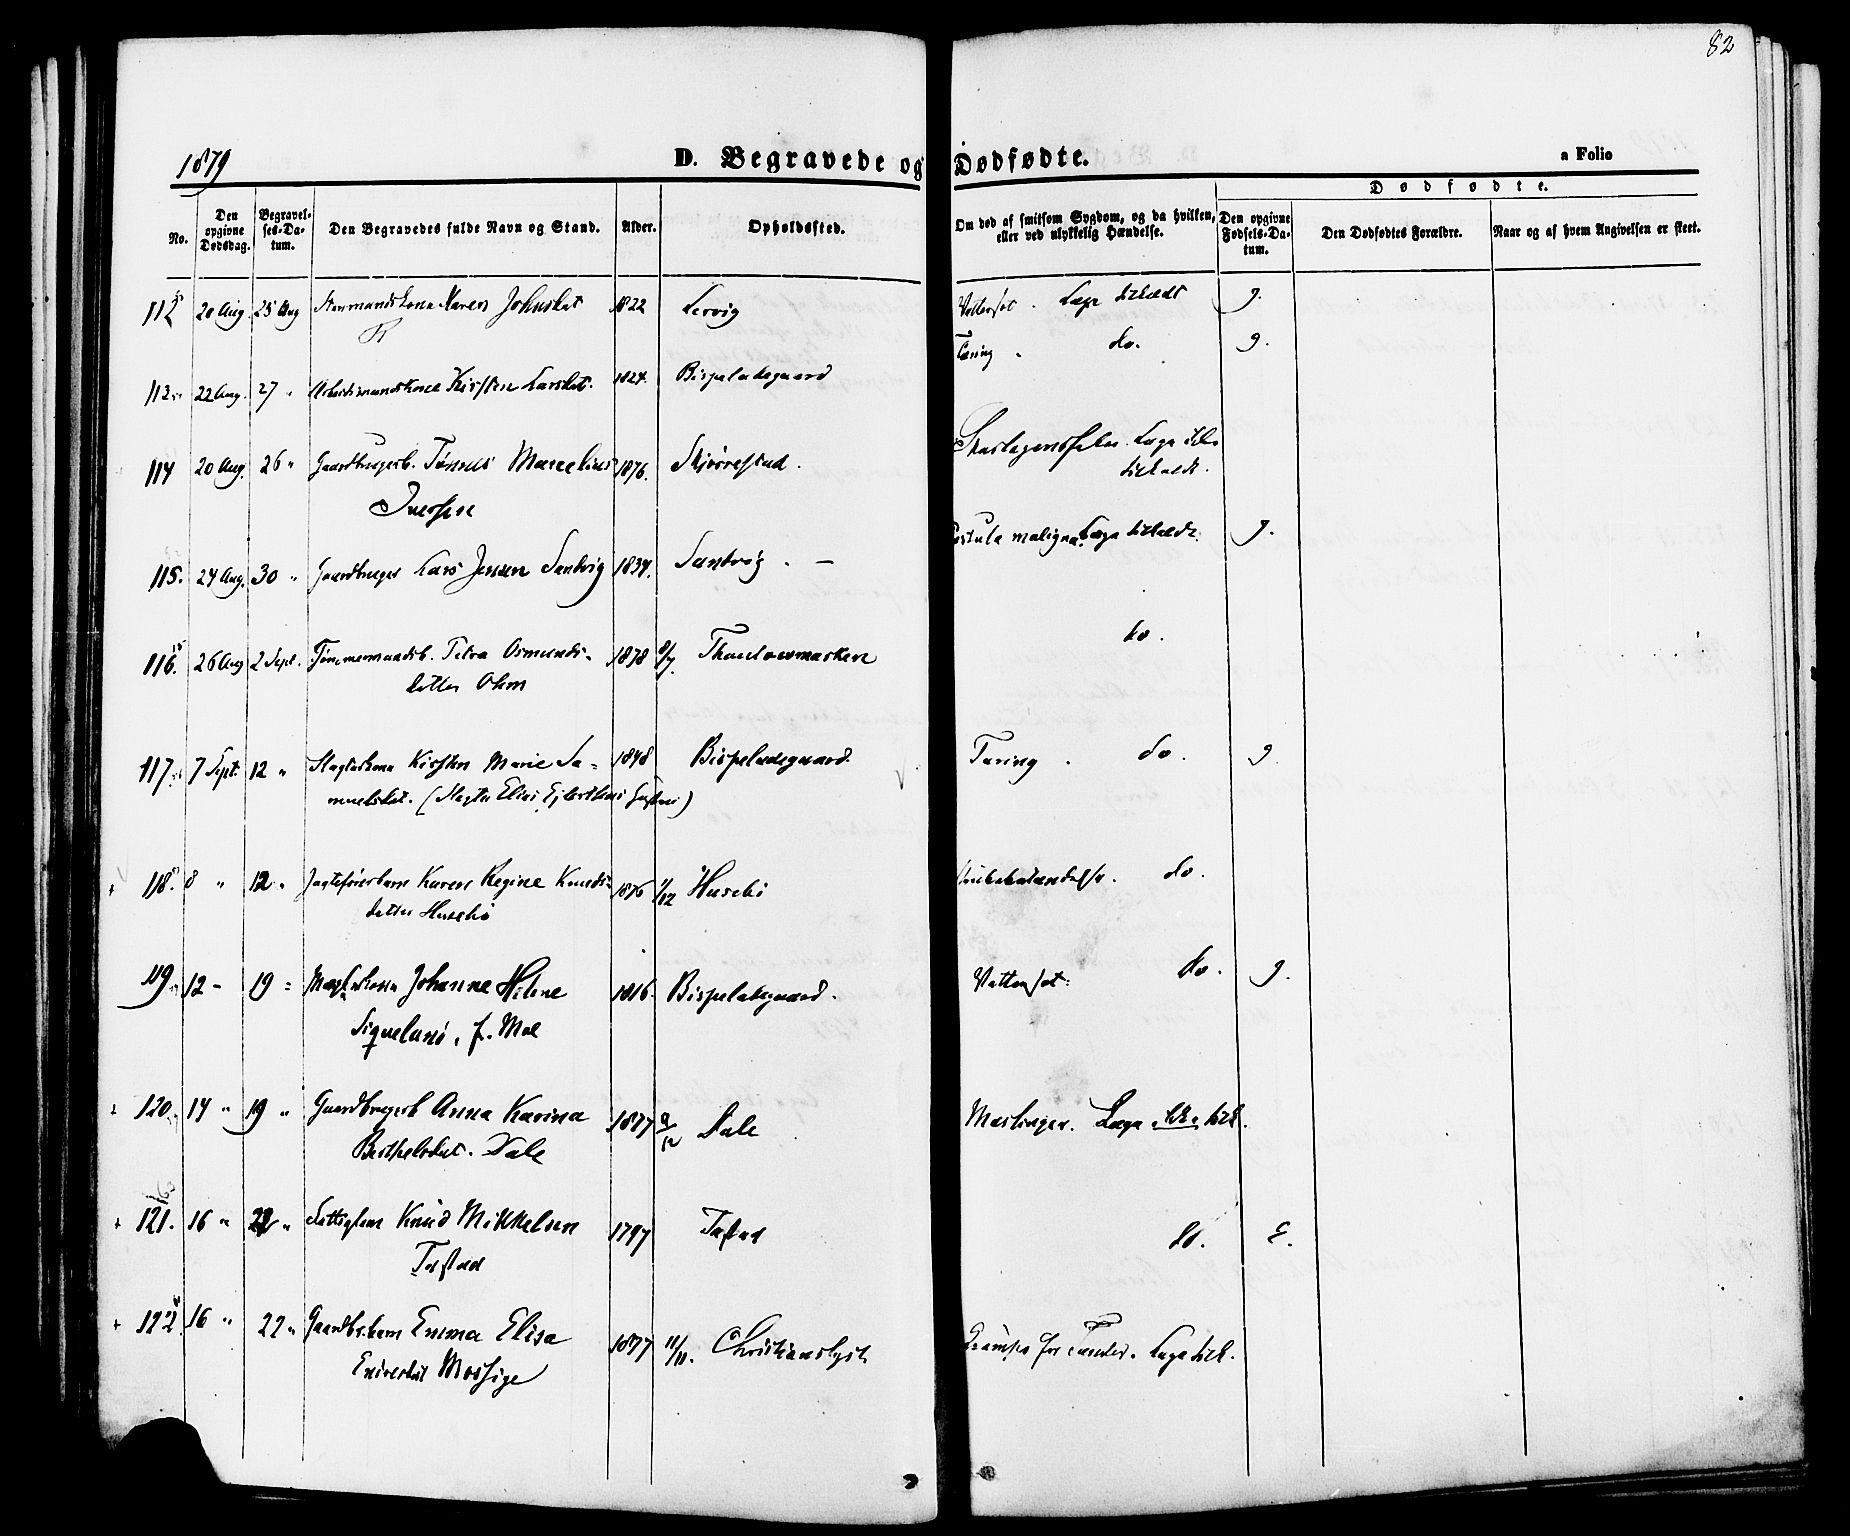 82
1879
D. Begravede og Dødfødte.
a Folio
No.
Den opgivne Dødsdag.
Begravelses-Datum.
Den Begravedes fulde Navn og Stand.
Alder.
Opholdssted.
Om død af smitsom Sygdom, og da hvilken, eller ved ulykkelig Hændelse.
Dødfødte.
Den opgivne Fødsels-Datum.
Den Dødfødtes Forældre.
Naar og af hvem Angivelsen er skeet.
112 20 Aug. 25 Aug Karen Johnsdat 1822 Lervig Vattersot. Læge tilkaldt g.
113 22 Aug. 27 " Arbeidsmandskone Kirsten Larsdat. 1824. Bispeladegaard Tæring " do. g.
114 20 Aug. 26 " Gaardbrugerb. Tønnes Marcelius 1876. Skjørrestad. Skarlagensfeber. Læge ikke
Iversen tilkaldt.
115. 24 Aug. 30 " Gaardbruger Lars Jensen Sandvig 1834. Sandvig. — Pustula maligna. Læge tilkaldt. g.
116. 26 Aug 2 Sept. Tømmermandsb. Petra Osmunds- 1878 8/7 Thoulowmarken do.
datter Ohm
117. 7 Sept. 12 " Slagterkone Kirsten Marie Sa- 1848 Bispeladegaard. Tæring. do. g
muelsdat. (Slagter Elias Ejlertsens Hustru)
118. 8 " 12 " Jagteførerbarn Karen Regine Knuds- 1876 1/12 Husebø do.
datter Husebø
119 12 - 19 " Johanne Helene 1816. Bispeladegaard. Vattersot. do. g.
Siqveland, f. Moe
120. 14 " 19 " Gaardbrugerb Anna Karina 1877 9/12 Dale Mæslinger. Læge ikke tilk.
Berthelsdat. Dale
121. 16 " 22 " Knud Mikkelsen 1797 Tastad do. E.
Tastad
122 16 " 22 " Gaardbr.barn Emma Elisa 1877 11/11. Christianslyst Krampe for Tænder. Læge tilk.
Enivertdat Mossige